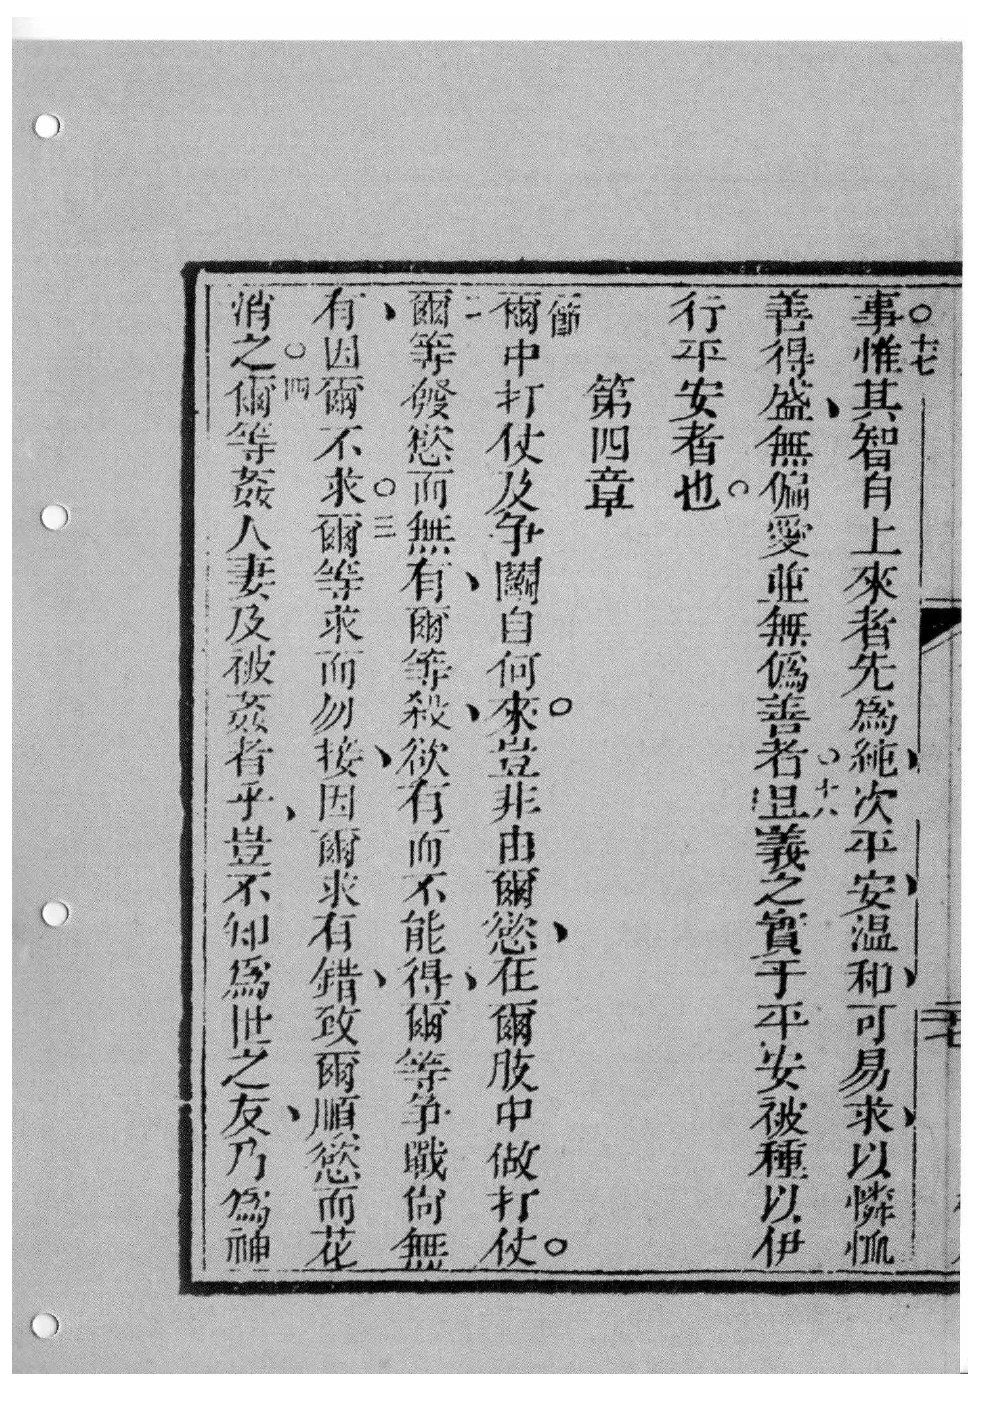 事○十七惟其智自上來者先爲純、次平安、温和、可易求、以憐恤
善得盛、無偏愛並無僞善者○十八且義之實于平安被種以伊
行平安者也○
第四章
節爾中打仗及争鬬自何來○豈非由爾慾、在爾肢中做打仗○
二爾等發慾而無有、爾等殺、欲有而不能得、爾等争戰尙無
有、因爾不求○三爾等求而勿接、因爾求有錯、致爾順慾而花
消之○四爾等姦人妻及被姦者乎、豈不知爲世之友、乃爲神